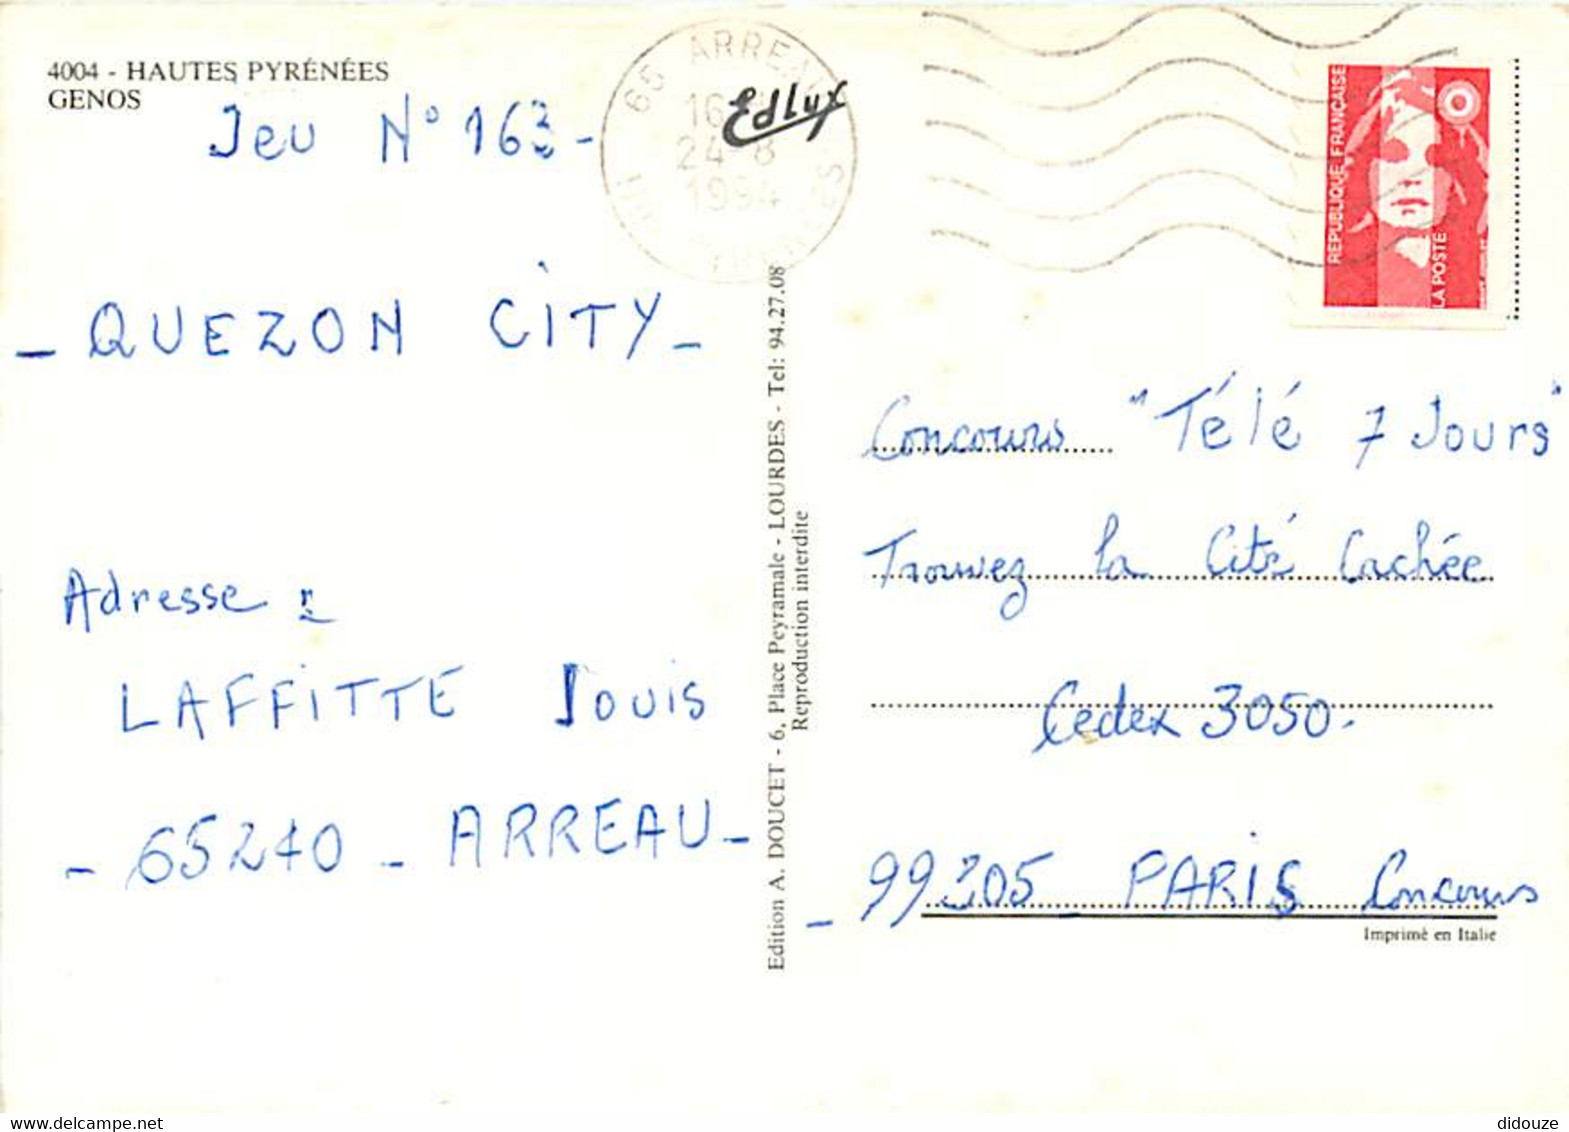 4004 - HAUTES PYRÉNÉES
GENOS
Jeu N° 163 -
- QUEZON CITY -
Adresse :
LAFFITTE Louis
- 65240 - ARREAU -
65 ARREAU
16
24 8
1994
PYRENEES
Edlux
Edition A. DOUCET - 6, Place Peyramale - LOURDES - Tel: 94.27.08
Reproduction interdite
REPUBLIQUE FRANÇAISE
LA POSTE
Concours "Télé 7 Jours"
Trouvez la Cité Cachée
Cedex 3050.
- 99205 - PARIS Concours
Imprimé en Italie
didouze